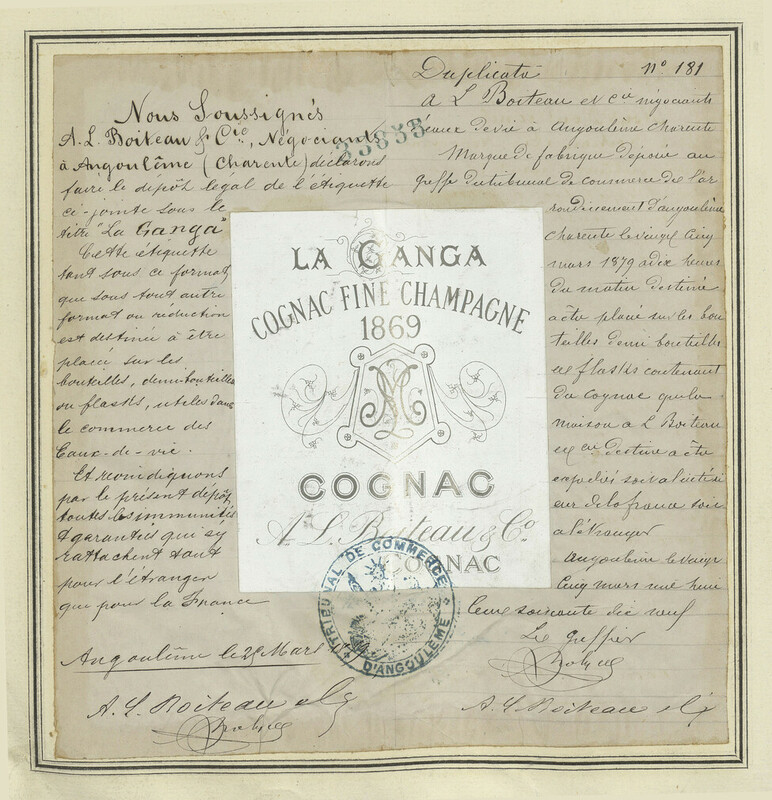 Nous Soussignés
A. L. Boiteau & Cie, Négociants
à Angoulême (Charente) déclarons
faire le dépôt légal de l'étiquette
ci-jointe sous le
titre "La Ganga"
Cette étiquette
tant sous ce format
que sous tout autre
format ou réduction
est destinée à être
placée sur les
bouteilles, demi-bouteilles
ou flasks, utiles dans
le commerce des
Eaux-de-vie.
Et revindiquons
par le présent dépôt,
toutes les immunités
et garanties qui s'y
rattachent tant
pour l'étranger
que pour la France
Angoulême le 25 Mars
A. L. Boiteau & Cie
Duplicata n° 181
A L Boiteau et Cie négociants
eaux de vie à Angoulême Charente
Marque de fabrique déposée au
greffe du tribunal de commerce de l'ar
rondissement d'angoulême
Charente le vingt cinq
mars 1879 a dix heures
du matin destiné
a être placé sur les bou
teilles demi bouteilles
et flasks contenant
du cognac que la
maison A L Boiteau
et Cie destine a être
expédiés soit a l'intéri
eur de la france soit
a l'étranger
Angoulême le vingt
cinq mars mil huit
cent soixante dix neuf
Le Greffier
A. L. Boiteau & Cie
LA GANGA
COGNAC FINE CHAMPAGNE
1869
COGNAC
A L. Boiteau & Co.
COGNAC
TRIBUNAL DE COMMERCE
D'ANGOULÊME